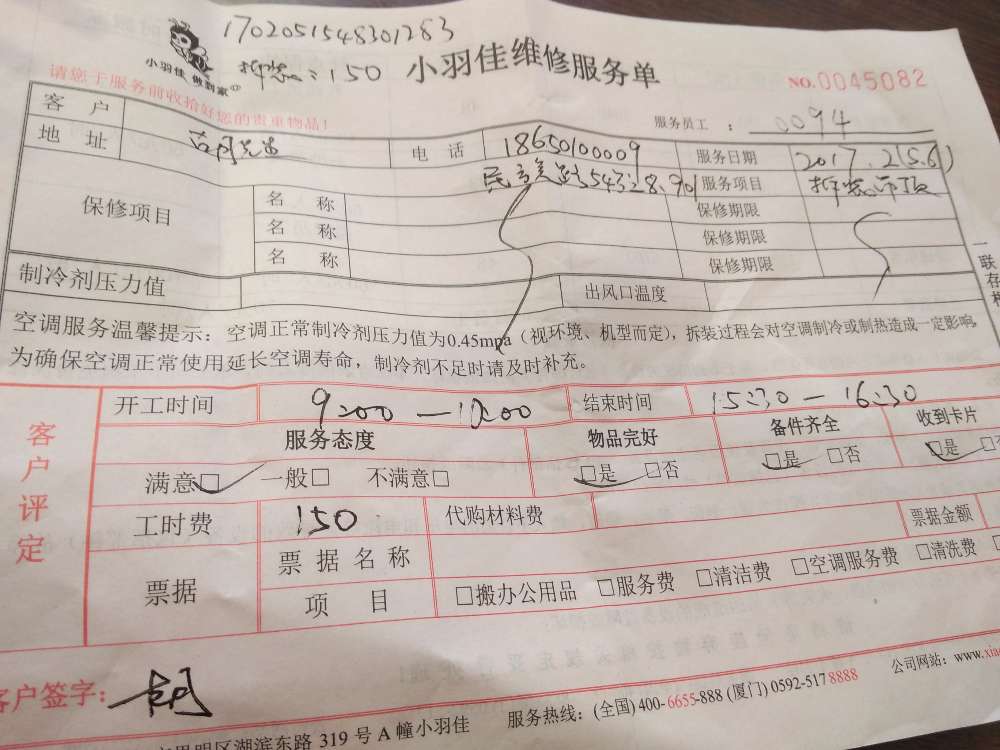 1702051548301283
小羽佳 做到家
拆装:150
小羽佳维修服务单
NO.0045082
请您于服务前收拾好您的贵重物品!
服务员工 : 0094
客 户
地 址
电 话 18650100009
服务日期 2017.2(5.6)
服务项目
保修项目
名 称
保修期限
名 称
保修期限
名 称
保修期限
制冷剂压力值
出风口温度
一联存
空调服务温馨提示:空调正常制冷剂压力值为0.45mpa(视环境、机型而定),拆装过程会对空调制冷或制热造成一定影响,
为确保空调正常使用延长空调寿命,制冷剂不足时请及时补充。
客户评定
开工时间 9:00—10:00 结束时间 15:30—16:30
服务态度 物品完好 备件齐全 收到卡片
满意□ 一般□ 不满意□ □是 □否 □是 □否 □是
工时费 150 代购材料费 票据金额
票据
票 据 名 称
项 目 □搬办公用品 □服务费 □清洁费 □空调服务费 □清洗费
客户签字:
公司网站:www.xia
明区湖滨东路 319 号 A 幢小羽佳 服务热线:(全国) 400-6655-888 (厦门) 0592-5178888